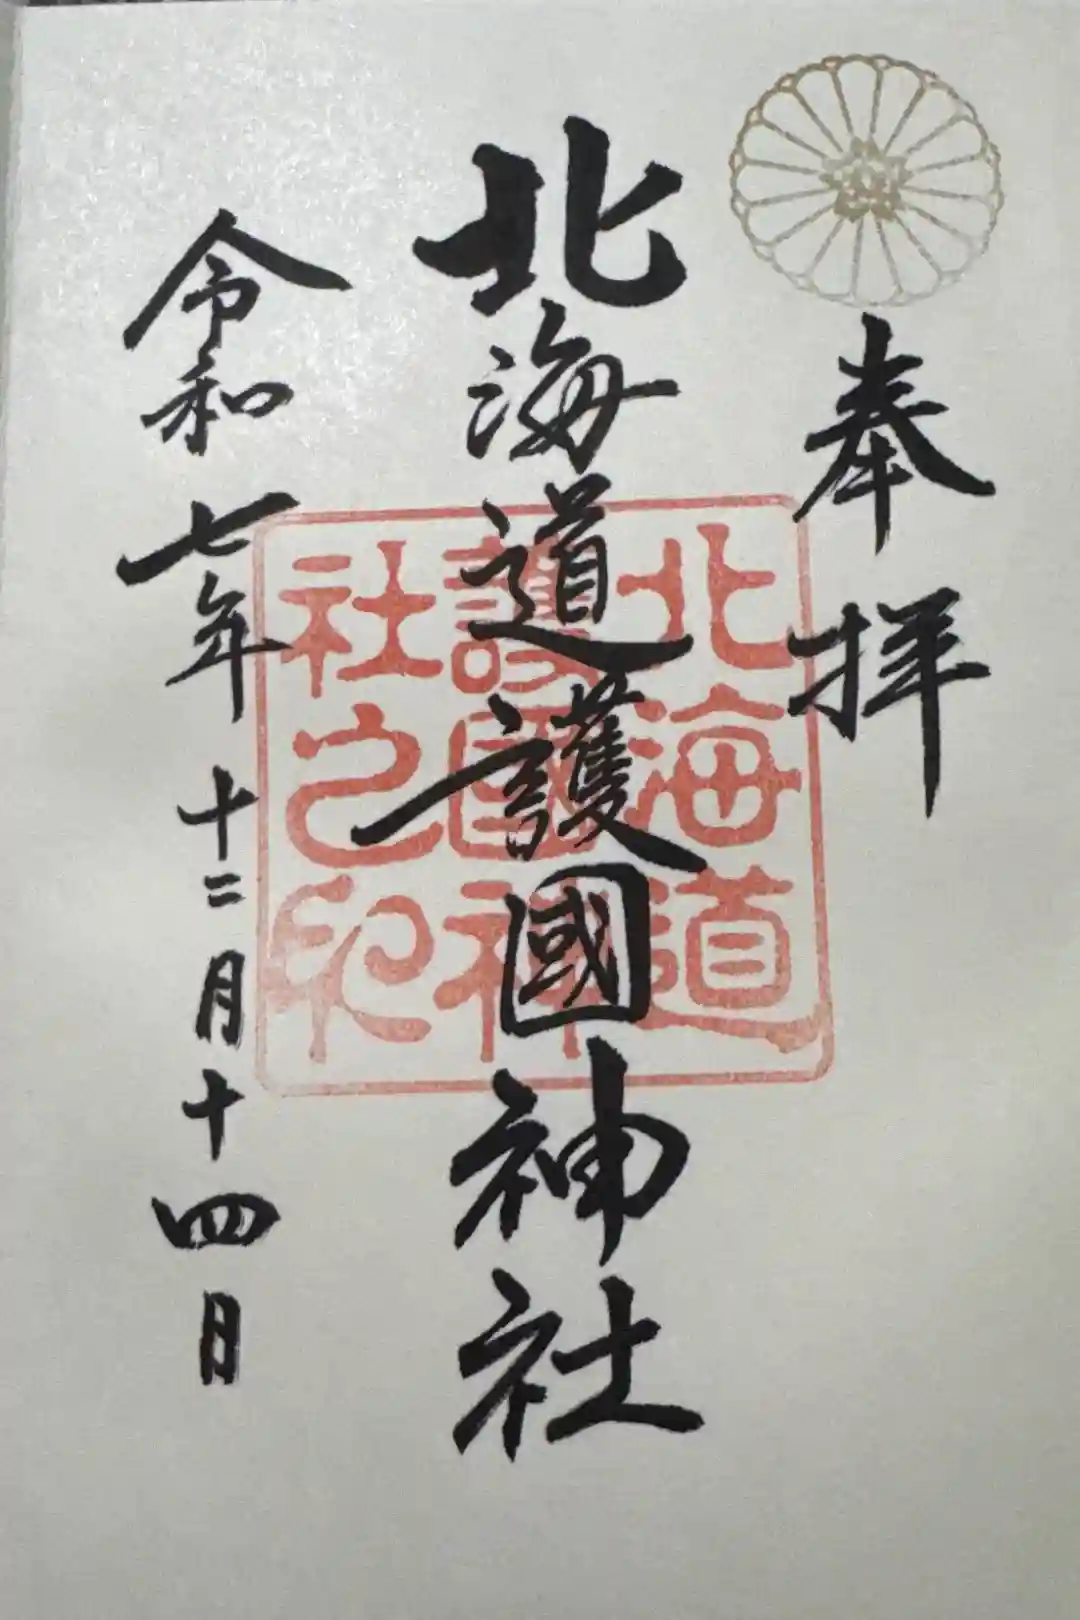 奉拝
北海道護國神社
北海道
護國神
社之印
令和七年十二月十四日